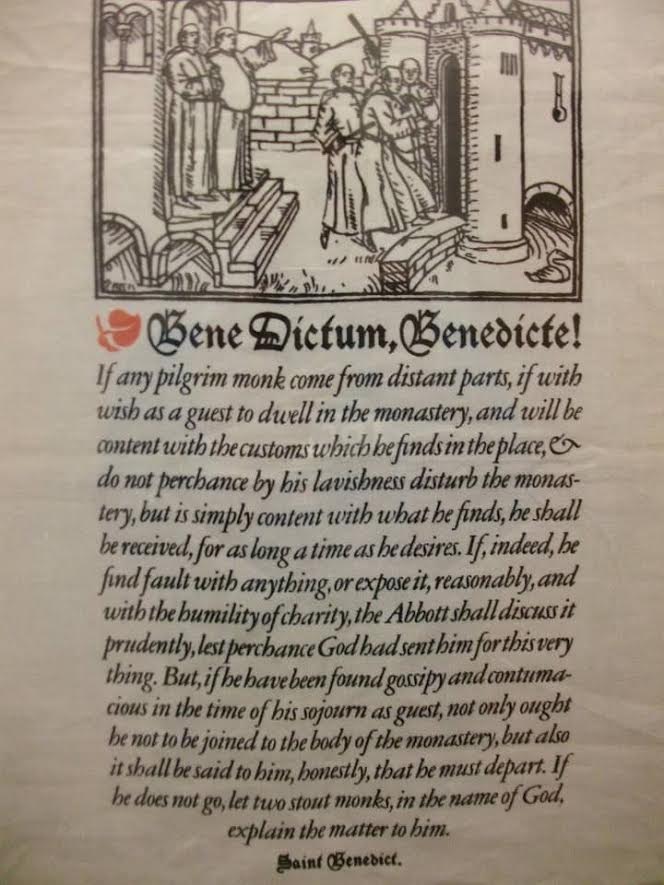 Bene Dictum, Benedicte!
If any pilgrim monk come from distant parts, if with
wish as a guest to dwell in the monastery, and will be
content with the customs which he finds in the place, &
do not perchance by his lavishness disturb the monas-
tery, but is simply content with what he finds, he shall
be received, for as long a time as he desires. If, indeed, he
find fault with anything, or expose it, reasonably, and
with the humility of charity, the Abbott shall discuss it
prudently, lest perchance God had sent him for this very
thing. But, if he have been found gossipy and contuma-
cious in the time of his sojourn as guest, not only ought
he not to be joined to the body of the monastery, but also
it shall be said to him, honestly, that he must depart. If
he does not go, let two stout monks, in the name of God,
explain the matter to him.
Saint Benedict.